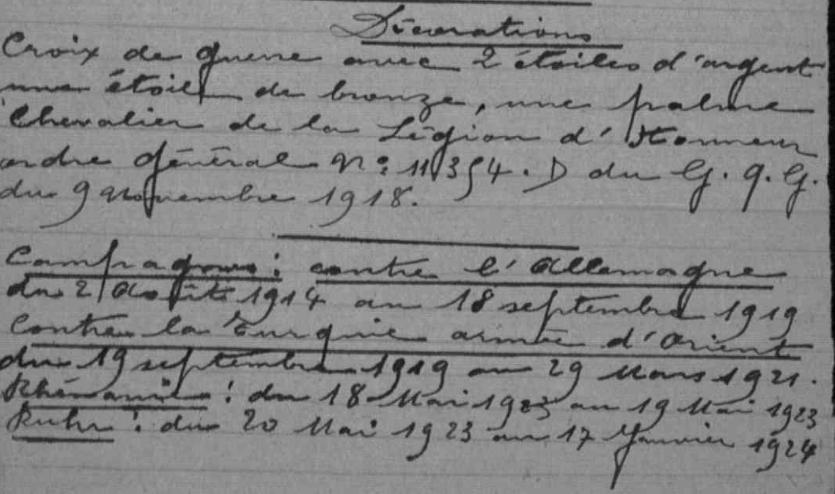 Décorations
Croix de guerre avec 2 étoiles d'argent
une étoile de bronze, une palme
Chevalier de la Légion d'Honneur
ordre général N° 11354. D du G. Q. G.
du 9 novembre 1918.
Campagnes : contre l'Allemagne
du 2 Août 1914 au 18 septembre 1919
Contre la Turquie armée d'Orient
du 19 septembre 1919 au 29 Mars 1921.
Rhénanie : du 18 Mai 1923 au 19 Mai 1923
Ruhr : du 20 Mai 1923 au 17 Janvier 1924